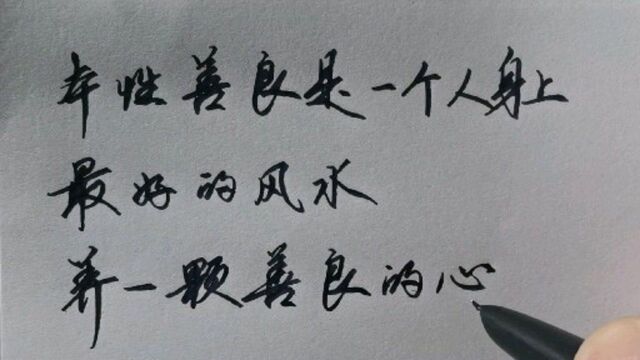 本性善良是一个人身上
最好的风水
养一颗善良的心